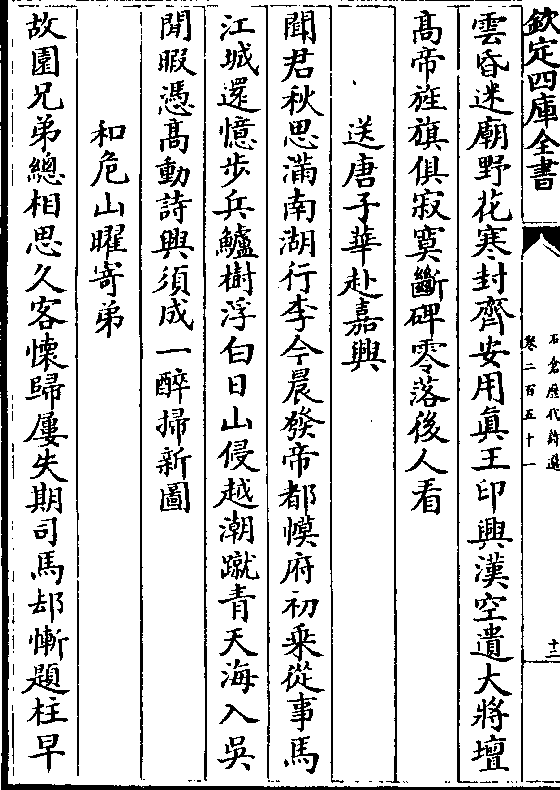 欽定四庫全書
石倉歷代詩選
卷二百五十一
十二
雲昏迷廟野花寒封齊安用真王印興漢空遺大將壇
高帝旌旗俱寂寞斷碑零落後人看
送唐子華赴嘉興
聞君秋思滿南湖行李今晨發帝都幙府初乘從事馬
江城還憶步兵鱸樹浮白日山侵越潮蹴青天海入吳
聞暇憑高動詩興須成一醉掃新圖
和危山曜寄弟
故園兄弟總相思久客懷歸屢失期司馬却慚題柱早